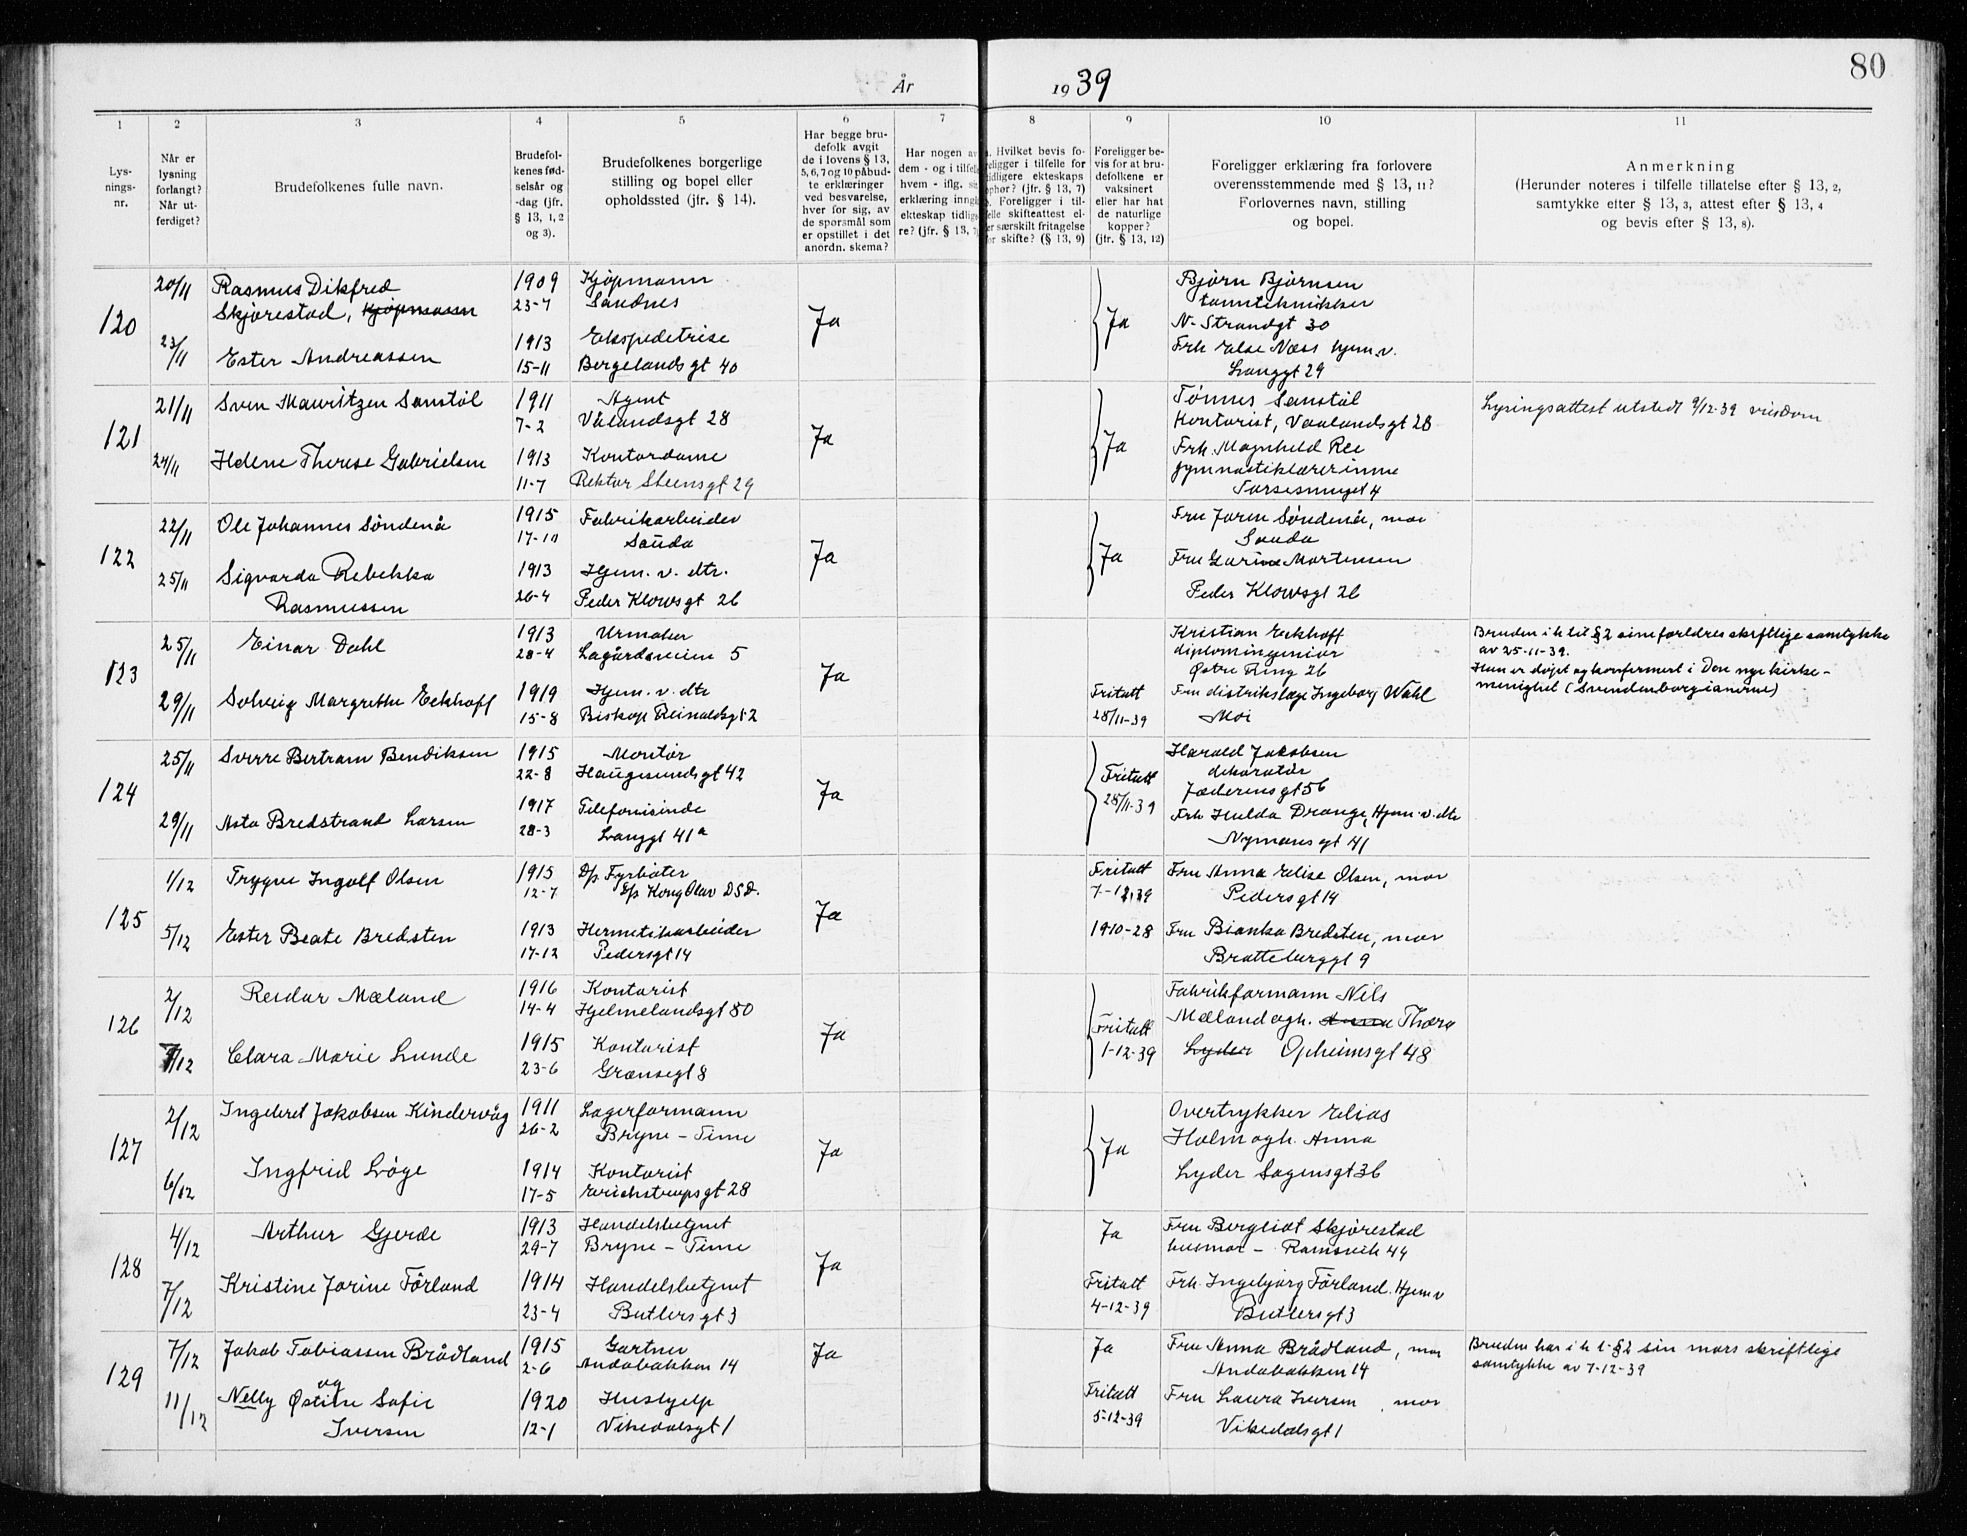 80
År 1939
1 2 3 4 5 6 7 8 9 10 11
Lys-
nings-
nr.
Når er
lysning
forlangt?
Når ut-
ferdiget?
Brudefolkenes fulle navn.
Brudefol-
kenes fød-
selsår og
-dag (jfr.
§ 13, 1, 2
og 3).
Brudefolkenes borgerlige
stilling og bopel eller
opholdssted (jfr. § 14).
Har begge bru-
defolk avgit
de i lovens § 13,
5, 6, 7 og 10 påbud-
te erklæringer
ved besvarelse,
hver for sig, av
de spørsmål som
er opstillet i det
anordn. skema?
Har nogen av
dem - og i tilfelle
hvem - iflg. si
erklæring inng
ekteskap tidlig
re? (jfr. § 13, 7
a. Hvilket bevis fo-
religger i tilfelle for
tidligere ekteskaps
ophør? (jfr. § 13, 7)
b. Foreligger i til-
felle skifteattest el-
er særskilt fritagelse
for skifte? (§ 13, 9)
Foreligger be-
vis for at bru-
defolkene er
vaksinert
eller har hat
de naturlige
kopper?
(jfr. § 13, 12)
Foreligger erklæring fra forlovere
overensstemmende med § 13, 11?
Forlovernes navn, stilling
og bopel.
Anmerkning
(Herunder noteres i tilfelle tillatelse efter § 13, 2,
samtykke efter § 13, 3, attest efter § 13, 4
og bevis efter § 13, 8).
120
20/11 Rasmus Dikfred 1909 Kjøpmann
Skjørestad, Kjøpmann 23-7 Sandnes
Ja
23/11 Ester Andreassen 1913 Ekspedetrise
15-11 Bergelandsgt 40
Ja
Bjørn Bjørnsen
tanntekniker
N-Strandgt 30
Frk Else Næss hjem.v.
Langgt 29
121
21/11 Sven Mauritzen Sanstøl 1911 Agent
7-2 Vålandsgt 28
Ja
24/11 Helene Therese Gabrielsen 1913 Kontordame
11-7 Rektor Steensgt 29
Ja
Tønnes Sanstøl
Kontorist, Vaalandsgt 28
Frk. Magnhild Ree
gymnastiklærerinne
4
Lysingsattest utstedt 9/12-39
122
22/11 Ole Johannes Søndenå 1915 Fabrikarbeider
17-10 Sauda
Ja
25/11 Sigvarda Rebekka 1913 Hjem. v. dtr.
Rasmussen 26-4 Peder Klowsgt 26
Ja
Fru Søndenå, mor
Sauda
Fru Mortensen
Peder Klowsgt 26
123
25/11 Einar Dahl 1913 Urmaker
28-4 Lagårdsveien 5
Ja
29/11 Solveig Margrethe Eckhoff 1919 Hjem. v. dtr
15-8 Biskop Reinaldsgt 2
Fritatt
28/11-39
Kristian Eckhoff
diplomingeniør
Østre Ring 26
Fru distrikslæge Ingeborg Wahl
Moi
Bruden i h til § 2 sine foreldres skriftlige samtykke
av 25-11-39.
Hun er døpt og konfermert i Den nye kirke-
menighet (Svendenborgianerne)
124
25/11 Sverre Bertram Bendiksen 1915 Montør
22-8 Haugesundsgt 42
Ja
29/11 Asta Bredstrand Larsen 1917 Telefonisinde
28-3 Langgt 41a
Fritatt
28/11-39
Harald Jakobsen
dekoratør
Jæderensgt 56
Frk Hulda Drange, Hjem. v. dtr
Nymansgt 41
125
1/12 Trygve Ingolf Olsen 1915 D/s Fyrbøter
12-7 D/s Kong Olav DSD.
Ja
5/12 Ester Beate Bredsten 1913 Hermetikarbeider
17-12 Pedersgt 14
Fritatt
7-12.39
19-10-28
Fru Anna Elise Olsen, mor
Pedersgt 14
Fru Bianka Bredsten, mor
9
126
2/12 Reidar Mæland 1916 Kontorist
14-4 Hjelmelandsgt 80
Ja
7/12 Clara Marie Lunde 1915 Kontorist
23-6 Grænsegt 8
Fritatt
1-12-39
Fabrikformann Nils
Mæland og h. Anna Thora
Lyder Opheimsgt 48
127
2/12 Ingebret Jakobsen Kindervåg 1911 Lagerformann
26-2 Bryne - Time
Ja
6/12 Ingfrid Løge 1914 Kontorist
17-5 Erichstrupsgt 28
Ja
Overtrykker Elias
Holm og h. Anna
Lyder Sagensgt 36
128
4/12 Arthur Gjerde 1913 Handelsbetjent
29-7 Bryne - Time
Ja
7/12 Kristine Jorine Førland 1914 Handelsbetjent
23-4 Butlersgt 3
Ja
Fritatt
4-12-39
Fru Bergliot Skjørestad
husmor - Ramsvik 44
Frk. Ingebjørg Førland. Hjem v
Butlersgt 3
129
7/12 Jakob Tobiassen Brådland 1915 Gartner
2-6 Andabakken 14
Ja
og
11/12 Nelly Østine Sofie 1920 Hushjelp
Iversen 12-1 Vikedalsgt 1
Ja
Fritatt
5-12-39
Fru Anna Brådland, mor
Andabakken 14
Fru Laura Iversen, mor
Vikedalsgt 1
Bruden har i h t § 2 sin mors skriftlige
samtykke av 7-12-39